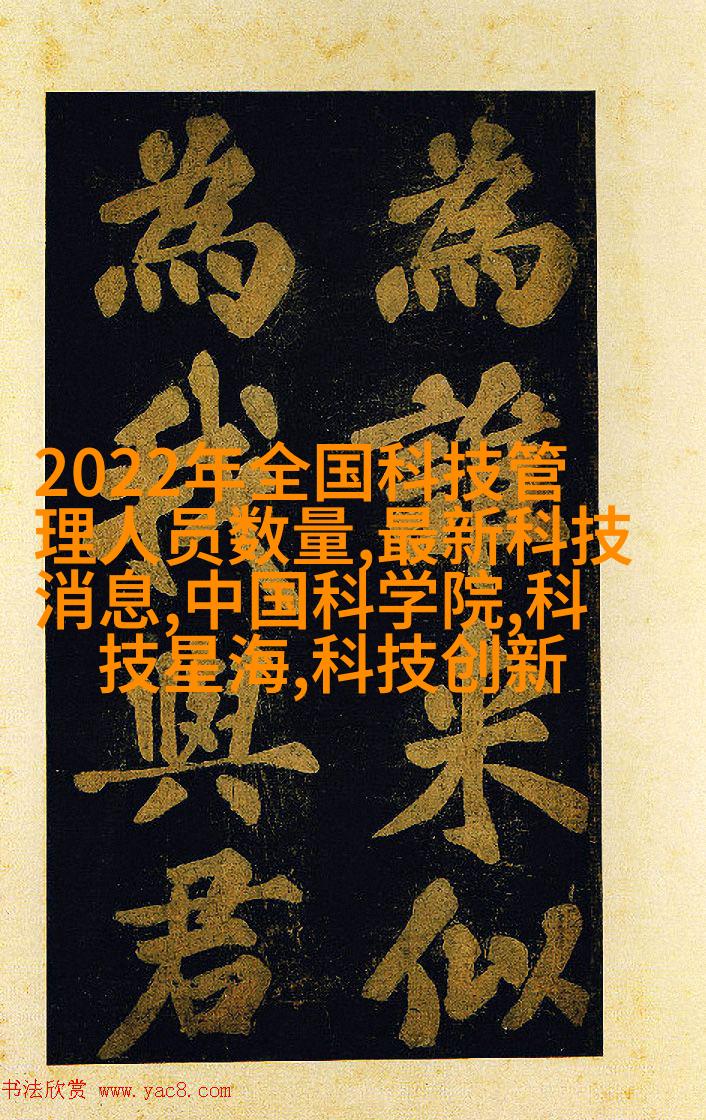 為誰米似
為我與君
2022年全国科技管
理人员数量,最新科技
消息,中国科学院,科
技星海,科技创新
书法欣赏 www.yac8.com